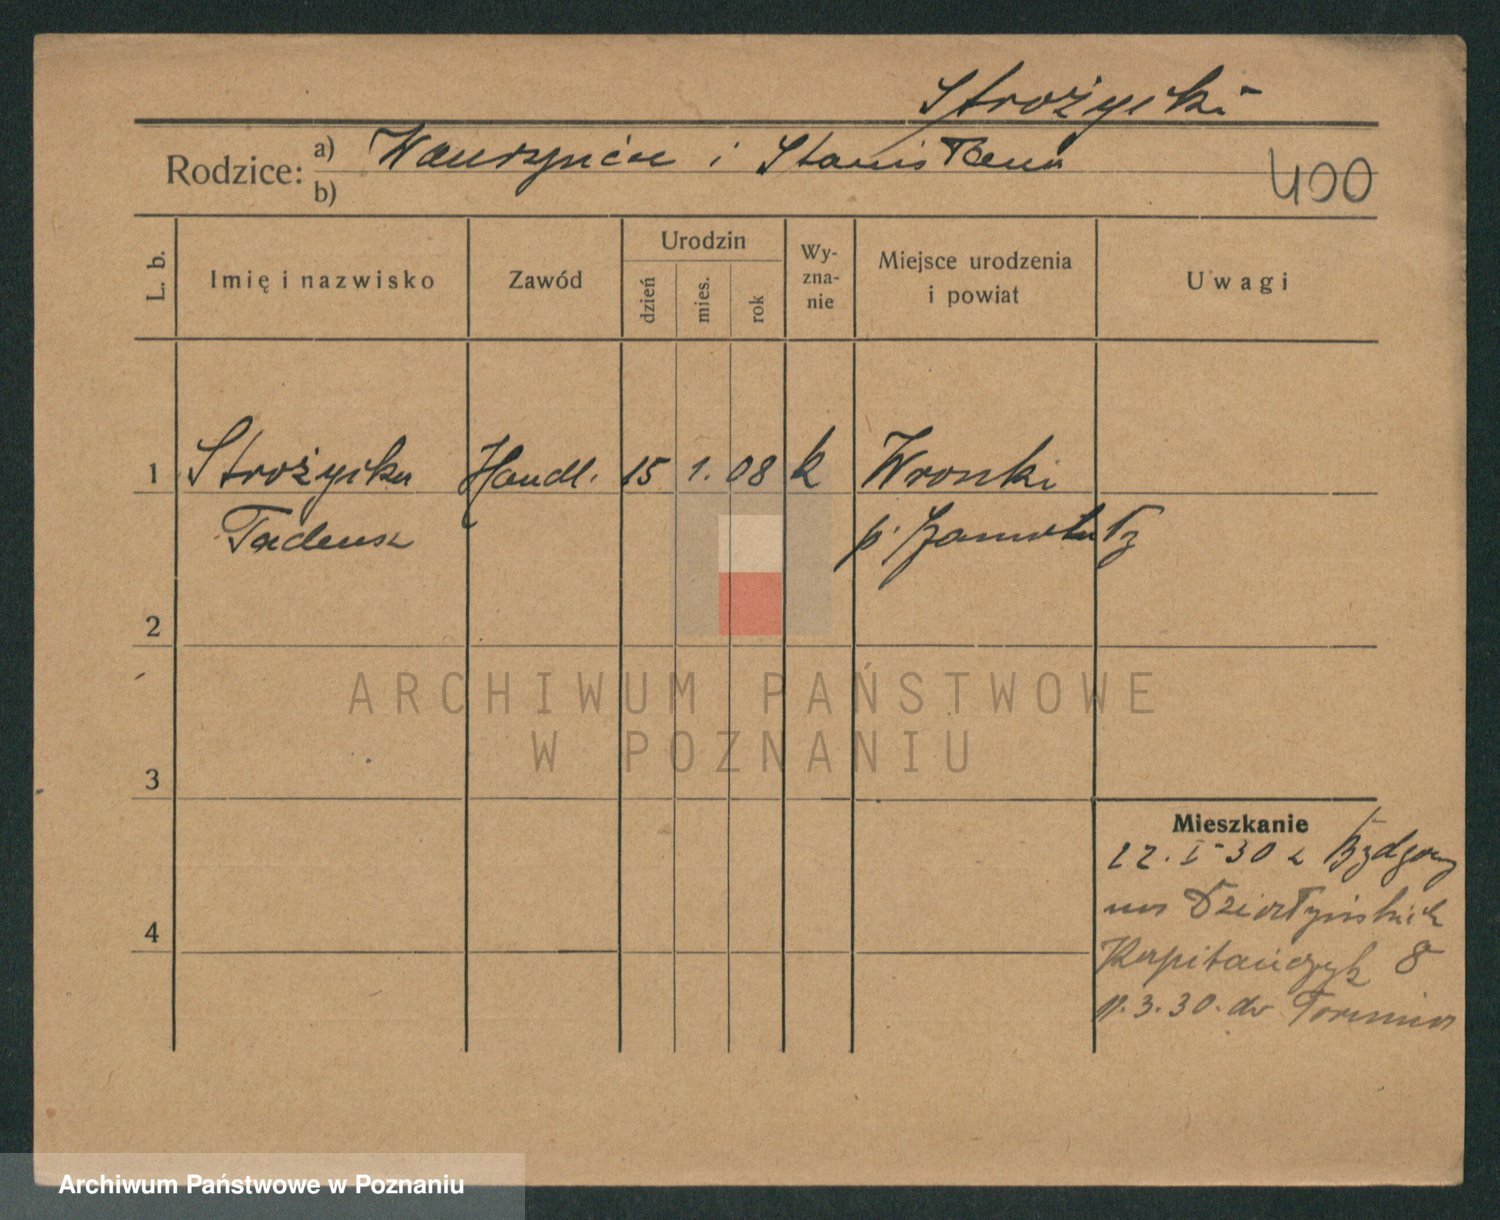 Strożycki
Rodzice: a) Wawrzyńiec i Stanisława
b)
400
L. b. Imię i nazwisko Zawód Urodzin dzień mies. rok Wy-zna-nie Miejsce urodzenia i powiat Uwagi
1 Strożycki Handl. 15 1. 08 k Wronki
Tadeusz p. Szamotuły
2
ARCHIWUM PAŃSTWOWE
W POZNANIU
3
Mieszkanie
22. I 30 z Bydgoszy
na Działyńskich
4
Kapitańczyk 8
3. 30. do Torunia
Archiwum Państwowe w Poznaniu